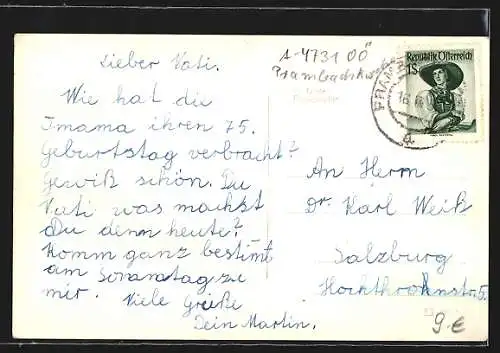 Lieber Vati.
Wie hat die
Imama ihren 75.
Geburtstag verbracht?
Gewiß schön. Du
Vati was machst
Du denn heute?
Komm ganz bestimt
am Sonnatag zu
mir. Viele Grüße
Dein Martin.
A-4731 OÖ
Prambachk
Republik Österreich
1S
PRAMB
An Herrn
Dr. Karl Weiß
Salzburg
Hochthronstr. 5.
9 €